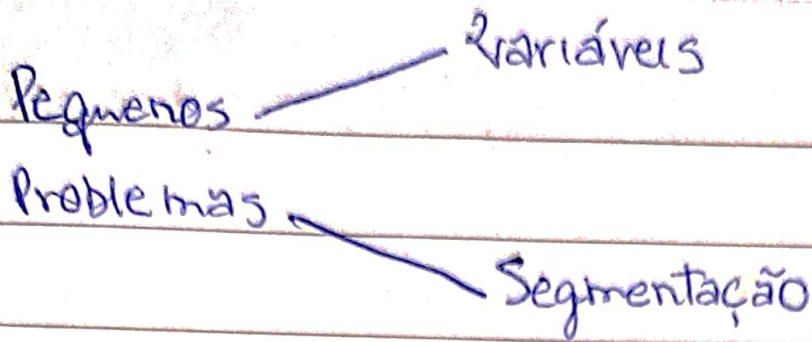 Variáveis
Pequenos
Problemas
Segmentação